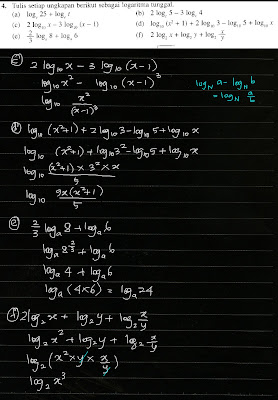 4. Tulis setiap ungkapan berikut sebagai logaritma tunggal.
(a) log, 25 + log, x (b) 2 log, 5 – 3 log, 4
(c) 2 log₁₀ x – 3 log₁₀ (x – 1) (d) log₁₀ (x² + 1) + 2 log₁₀ 3 – log₁₀ 5 + log₁₀ x
(e) 2/3 logₐ 8 + logₐ 6 (f) 2 log₂ x + log₂ y + log₂ x/y
c) 2 log₁₀ x – 3 log₁₀ (x-1)
log₁₀ x² – log₁₀ (x-1)³
log₁₀ x²/(x-1)³
log_N a – log_N b
= log_N a/b
d) log₁₀ (x²+1) + 2 log₁₀ 3 – log₁₀ 5 + log₁₀ x
log₁₀ (x²+1) + log₁₀ 3² – log₁₀ 5 + log₁₀ x
log₁₀ (x²+1) × 3² × x/5
log₁₀ 9x(x²+1)/5
e) 2/3 logₐ 8 + logₐ 6
logₐ 8^(2/3) + logₐ 6
logₐ 4 + logₐ 6
logₐ (4×6) = logₐ 24
f) 2 log₂ x + log₂ y + log₂ x/y
log₂ x² + log₂ y + log₂ x/y
log₂ (x² × y × x/y)
log₂ x³